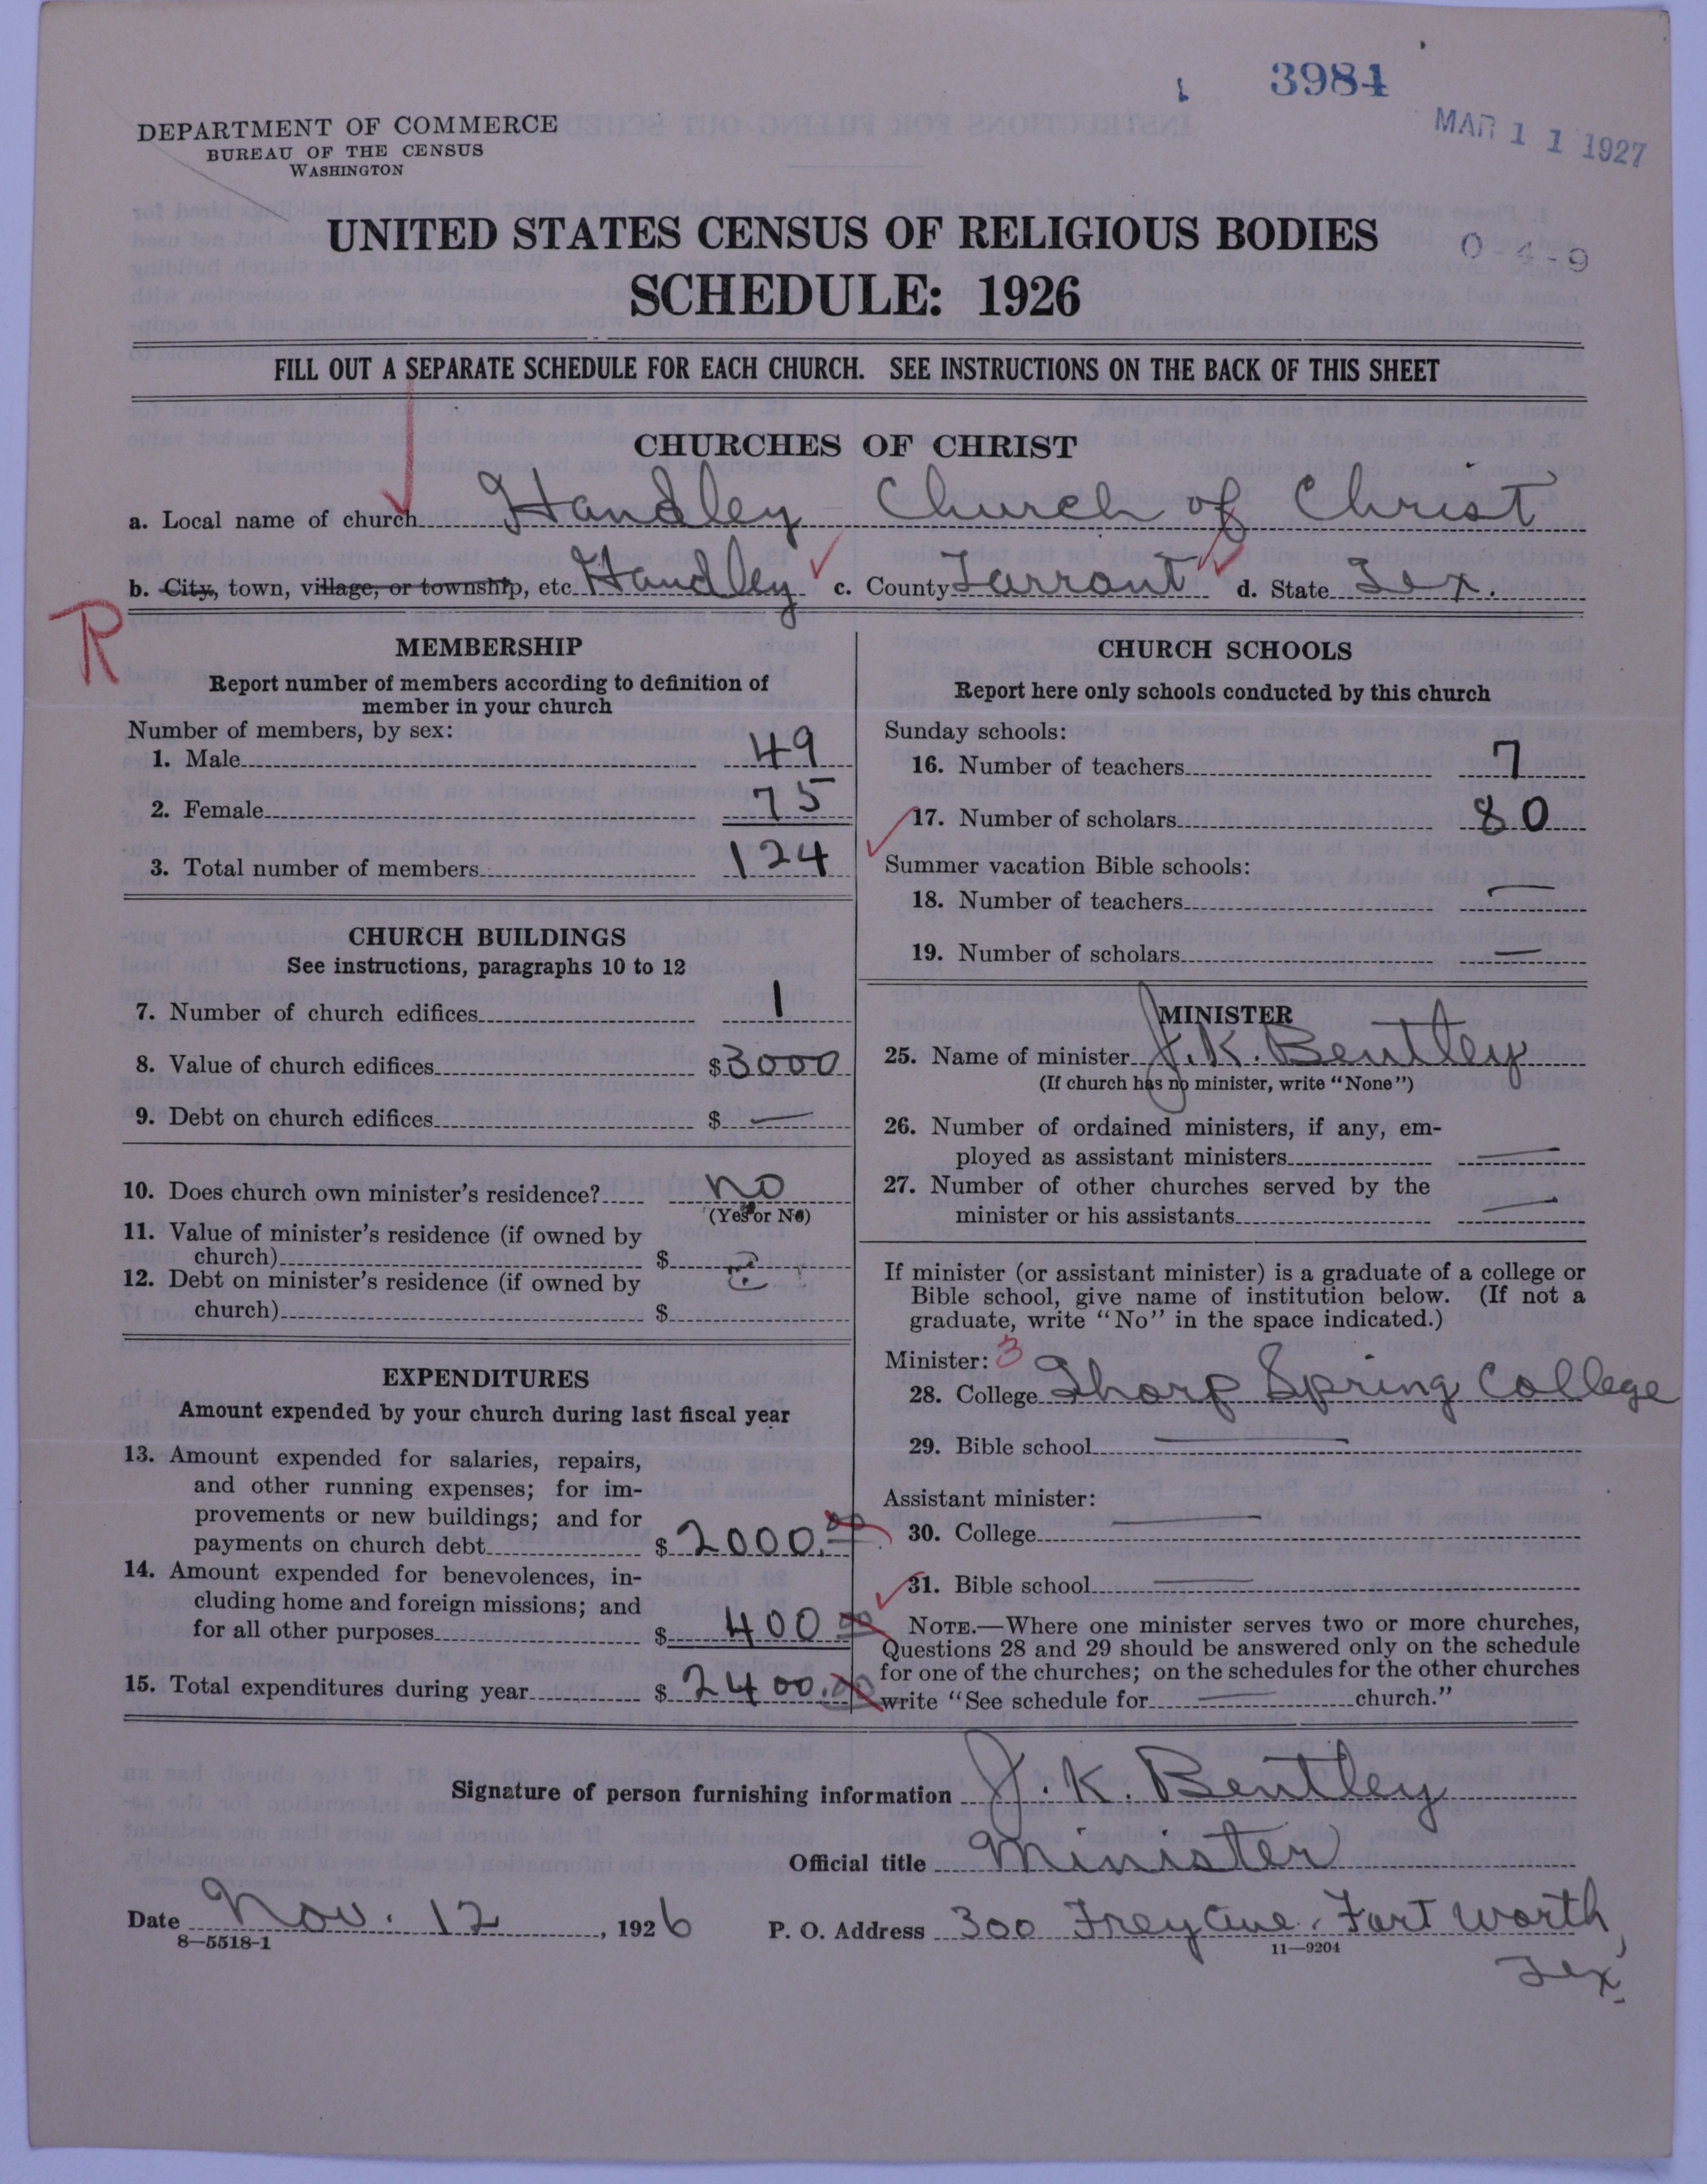 3984
MAR 11 1927
DEPARTMENT OF COMMERCE
BUREAU OF THE CENSUS
WASHINGTON
UNITED STATES CENSUS OF RELIGIOUS BODIES
0-4-9
SCHEDULE: 1926
FILL OUT A SEPARATE SCHEDULE FOR EACH CHURCH. SEE INSTRUCTIONS ON THE BACK OF THIS SHEET
CHURCHES OF CHRIST
a. Local name of church Handley Church of Christ
b. City, town, village, or township, etc. Handley c. County Tarrant d. State Tex.
R
MEMBERSHIP
Report number of members according to definition of
member in your church
Number of members, by sex:
1. Male 49
2. Female 75
3. Total number of members 124
CHURCH BUILDINGS
See instructions, paragraphs 10 to 12
7. Number of church edifices 1
8. Value of church edifices $3000
9. Debt on church edifices $ —
10. Does church own minister's residence? no
(Yes or No)
11. Value of minister's residence (if owned by
church) $
12. Debt on minister's residence (if owned by
church) $
EXPENDITURES
Amount expended by your church during last fiscal year
13. Amount expended for salaries, repairs,
and other running expenses; for im-
provements or new buildings; and for
payments on church debt $ 2000.00
14. Amount expended for benevolences, in-
cluding home and foreign missions; and
for all other purposes $ 400 00
15. Total expenditures during year $ 2400.00
CHURCH SCHOOLS
Report here only schools conducted by this church
Sunday schools:
16. Number of teachers 7
17. Number of scholars 80
Summer vacation Bible schools:
18. Number of teachers —
19. Number of scholars —
MINISTER
25. Name of minister J. K. Bentley
(If church has no minister, write "None")
26. Number of ordained ministers, if any, em-
ployed as assistant ministers —
27. Number of other churches served by the
minister or his assistants —
If minister (or assistant minister) is a graduate of a college or
Bible school, give name of institution below. (If not a
graduate, write "No" in the space indicated.)
Minister: 3
28. College Thorp Spring College
29. Bible school —
Assistant minister:
30. College —
31. Bible school —
NOTE.—Where one minister serves two or more churches,
Questions 28 and 29 should be answered only on the schedule
for one of the churches; on the schedules for the other churches
write "See schedule for — church."
Signature of person furnishing information J. K. Bentley
Official title Minister
Date Nov. 12, 1926 P. O. Address 300 Frey Ave. Fort Worth,
8—5518-1 11—9204
Tex.